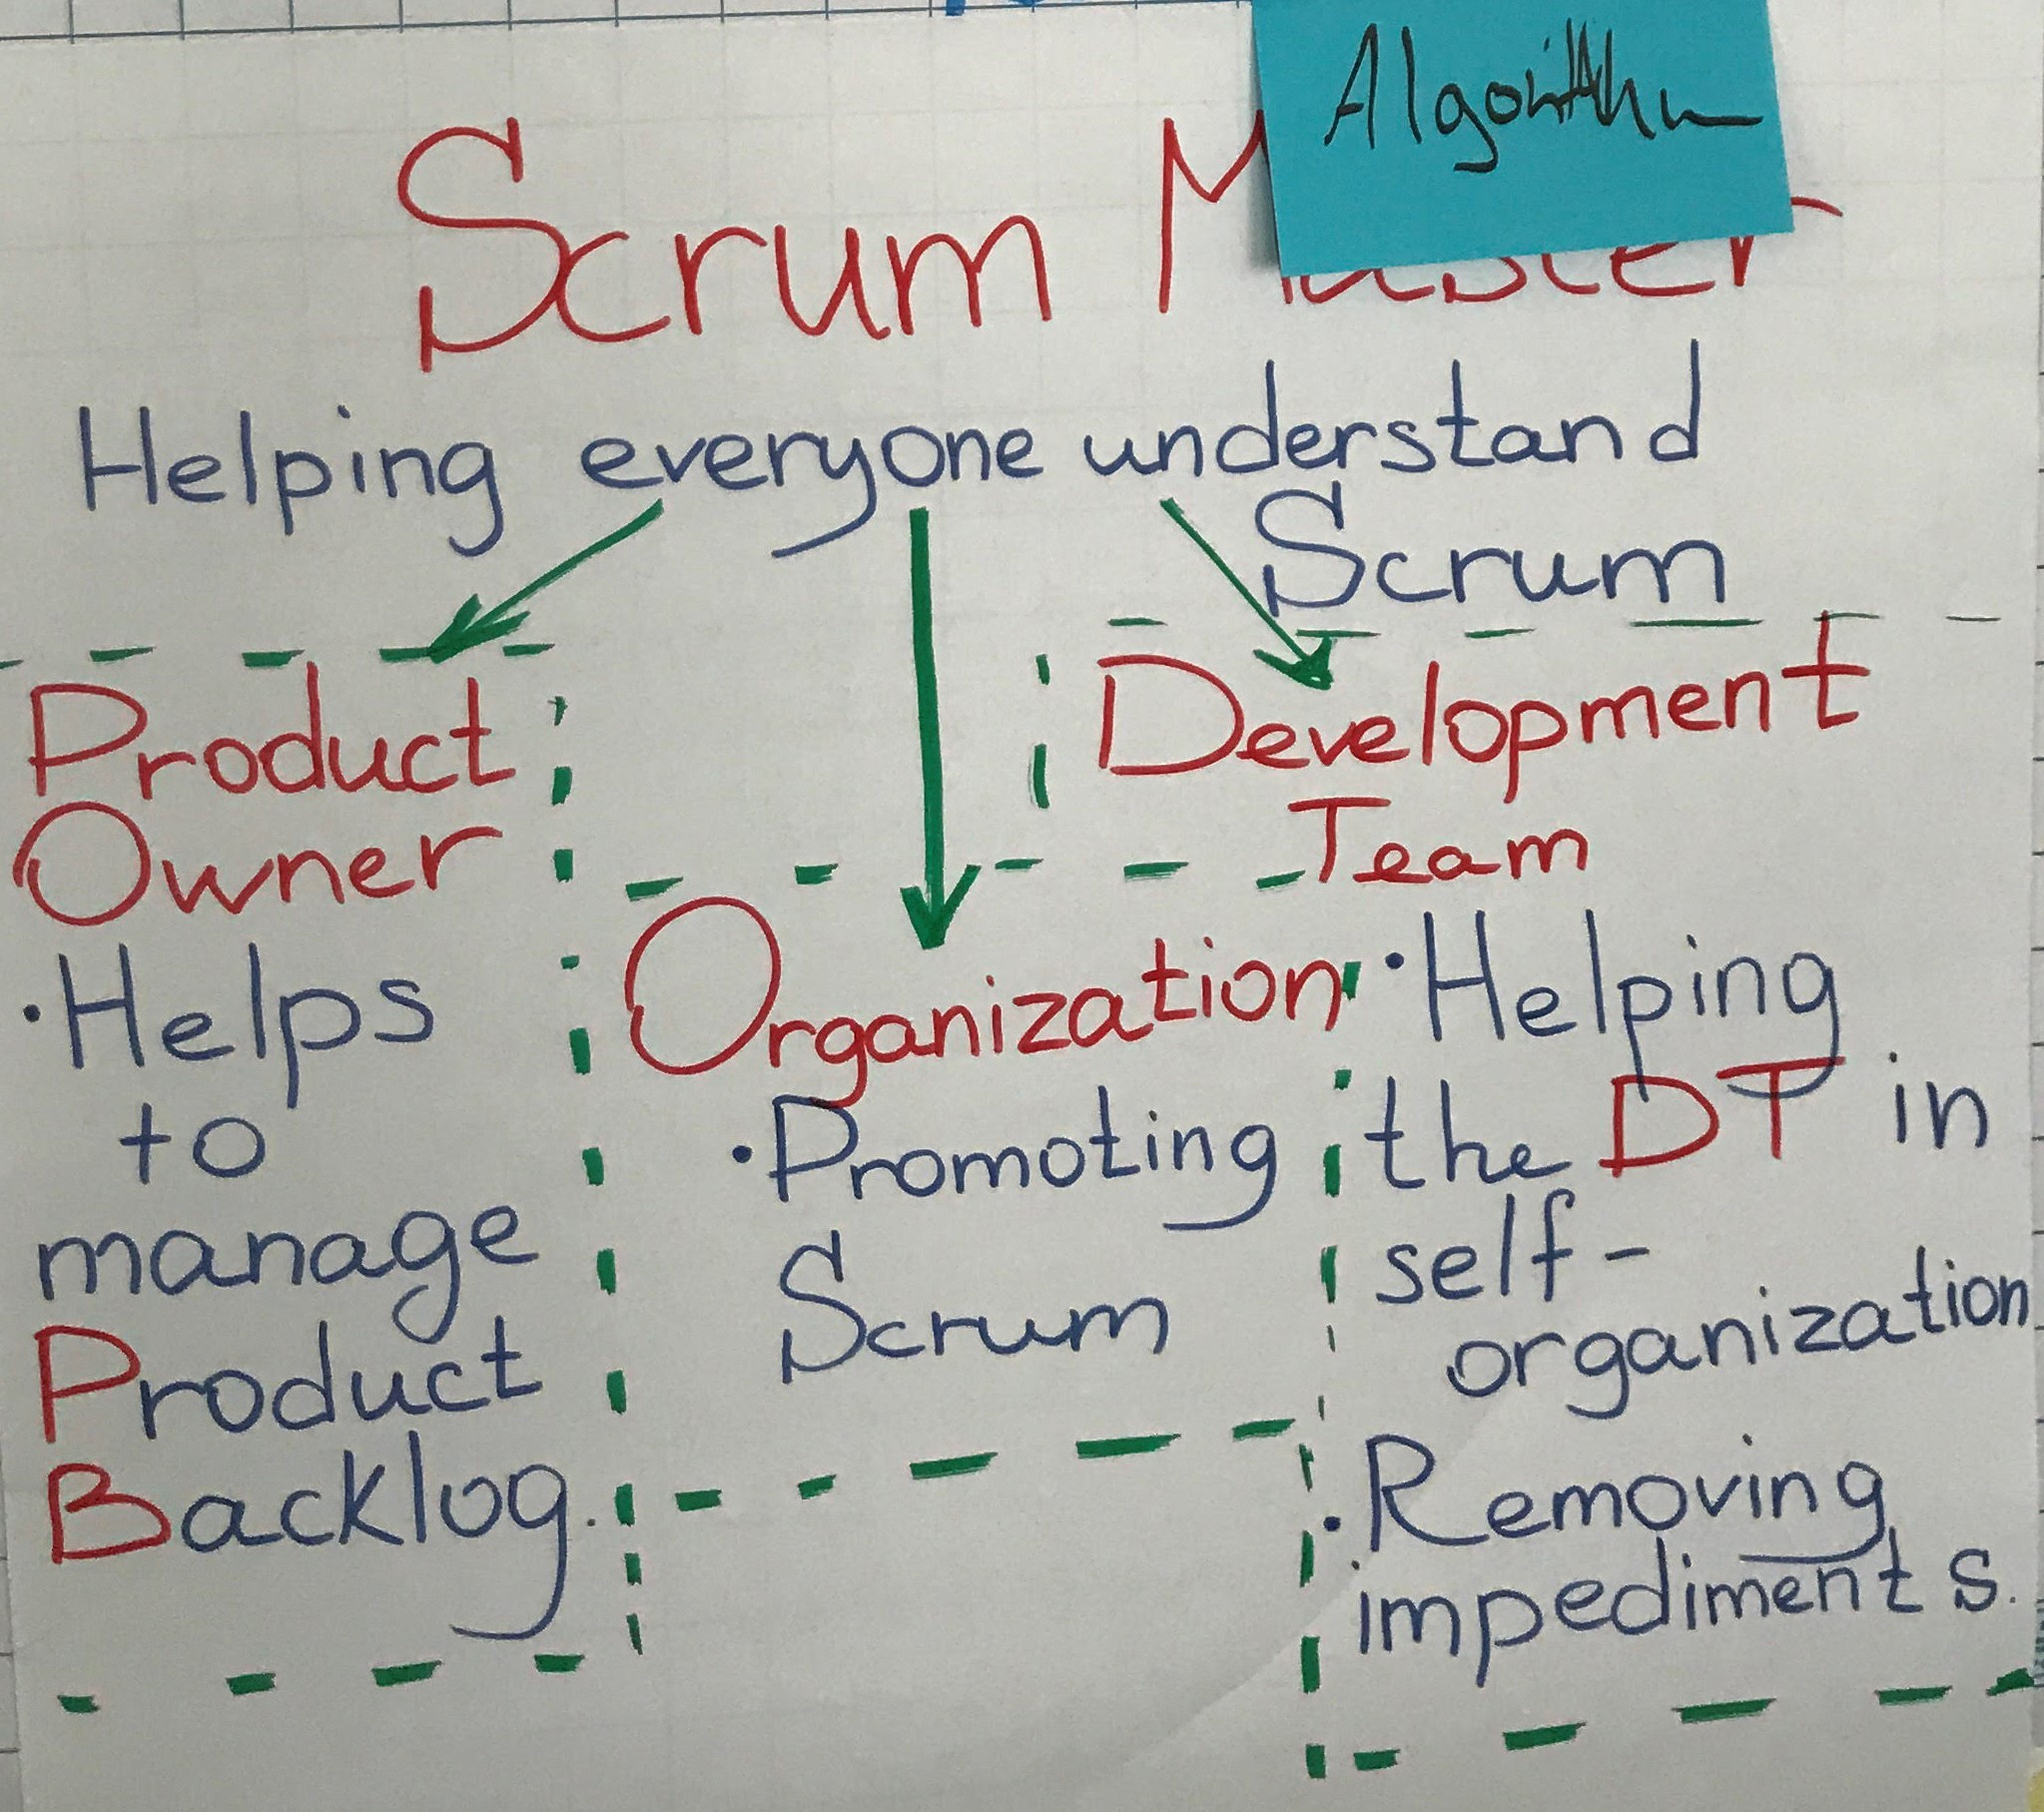 Algorithm
Scrum Master
Helping everyone understand
Scrum
Product
Owner
• Helps
to
manage
Product
Backlog.
Organization
• Promoting
Scrum
Development
Team
• Helping
the DT in
self-
organization
• Removing
impediments.